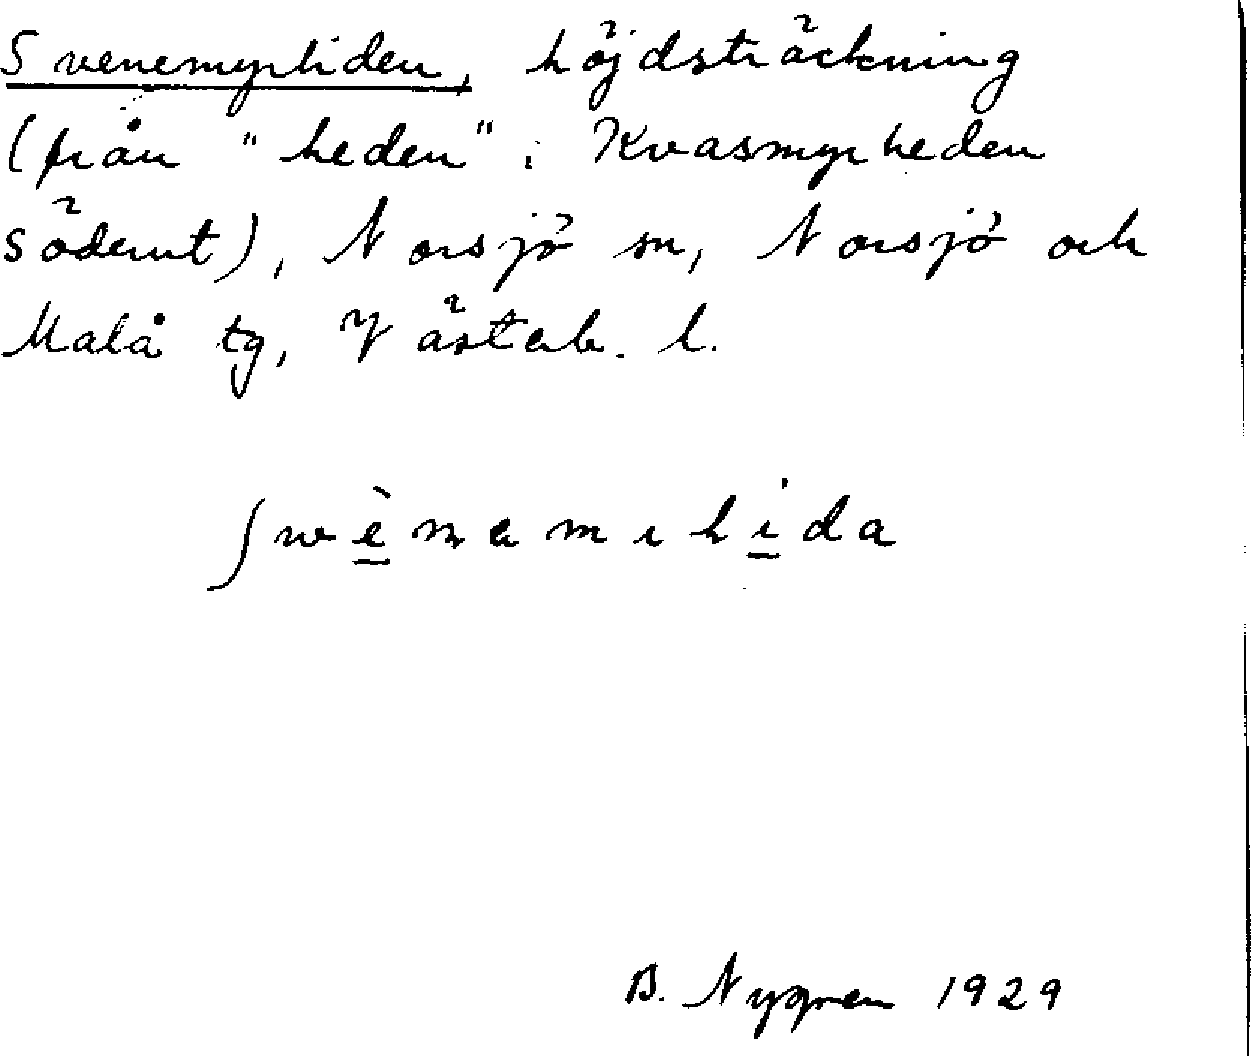 Svenemyrliden, höjdsträckning
(från "heden" i Kvasmyrheden
söderut), Norsjö sn, Norsjö och
Malå tg, Västerb. l.
ʃwènamılida
B. Nygren 1929